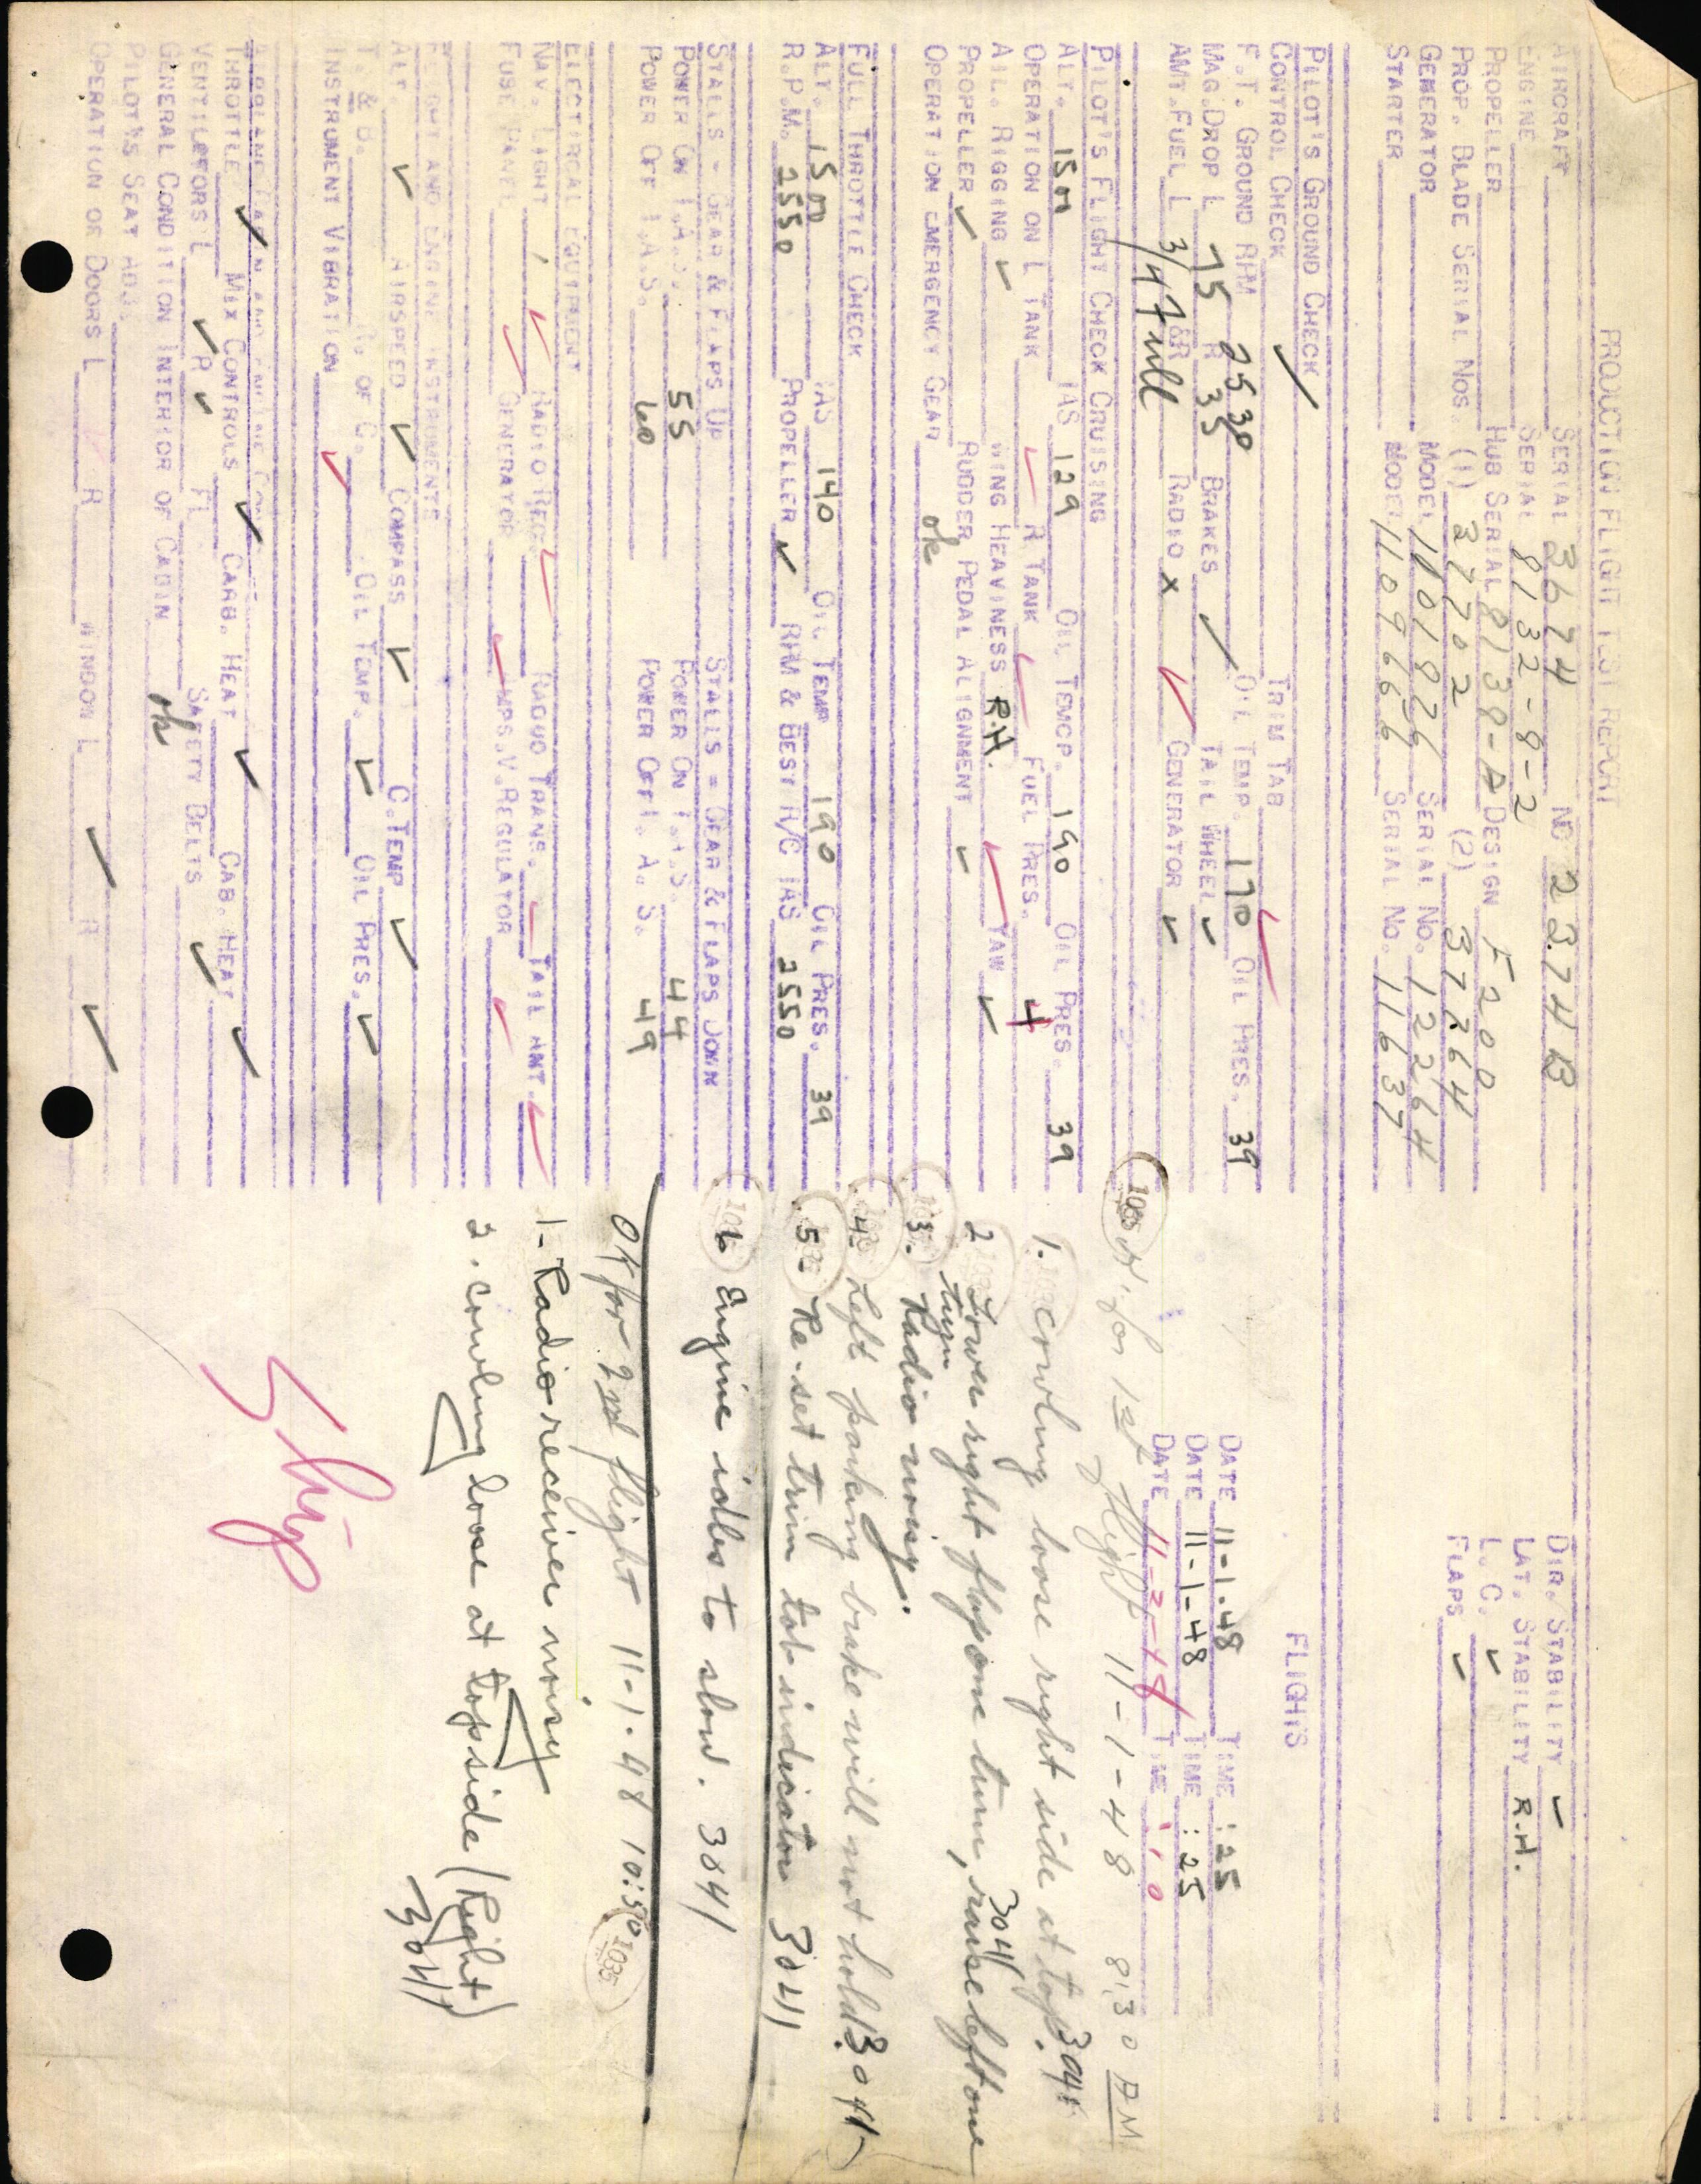 PRODUCTION FLIGHT TEST REPORT
AIRCRAFT SERIAL 3674 NC 2374B
ENGINE SERIAL 8132-8-2
PROPELLER HUB SERIAL 8138-A DESIGN F200
PROP. BLADE SERIAL NOS. (1) 37702 (2) 37764
GENERATOR MODEL 1101876 SERIAL NO. 12264
STARTER MODEL 1109666 SERIAL NO. 11637
DIR. STABILITY ✓
LAT. STABILITY R.H.
L.C. ✓
FLAPS ✓
PILOT'S GROUND CHECK
CONTROL CHECK ✓ TRIM TAB ✓
F.T. GROUND RPM 2530 OIL TEMP. 170 OIL PRES. 39
MAG.DROP L 75 R 35 BRAKES ✓ TAIL WHEEL ✓
AMT.FUEL L 3/4 &R Full RADIO X ✓ GENERATOR ✓
FLIGHTS
DATE 11-1-48 TIME :25
DATE 11-1-48 TIME :25
DATE 11-2-48 TIME :10
PILOT'S FLIGHT CHECK CRUISING
ALT. 1500 IAS 129 OIL TEMP. 190 OIL PRES. 39
OPERATION ON L TANK ✓ R TANK ✓ FUEL PRES. 4
AIL. RIGGING ✓ WING HEAVINESS R.H. ✓ YAW ✓
PROPELLER ✓ RUDDER PEDAL ALIGNMENT ✓
OPERATION EMERGENCY GEAR ok
FULL THROTTLE CHECK
ALT. 1500 IAS 140 OIL TEMP 190 OIL PRES. 39
R.P.M. 2550 PROPELLER ✓ RPM & BEST R/C IAS 2550
STALLS - GEAR & FLAPS UP STALLS = GEAR & FLAPS DOWN
POWER ON I.A.S. 55 POWER ON I.A.S. 44
POWER OFF I.A.S. 60 POWER OFF I.A.S. 49
ELECTIRCAL EQUIPMENT
NAV. LIGHT ✓ RADIO REC. ✓ RADIO TRANS. ✓ TAIL ANT. ✓
FUSE PANEL ✓ GENERATOR ✓ AMPS.V.REGULATOR ✓
FLIGHT AND ENGINE INSTRUMENTS
ALT. ✓ AIRSPEED ✓ COMPASS ✓ C.TEMP ✓
T. & B. R. OF C. OIL TEMP. ✓ OIL PRES. ✓
INSTRUMENT VIBRATION ✓
AIRPLANE CABIN AND ENGINE
THROTTLE ✓ MIX CONTROLS ✓ CARB. HEAT ✓ CAB. HEAT ✓
VENTILATORS L ✓ R ✓ SAFETY BELTS ✓
GENERAL CONDITION INTERIOR OF CABIN ok
PILOT'S SEAT ADJ.
OPERATION OF DOORS L R WINDOW L ✓ R ✓
1035 for 1st flight 11-1-48 8:30 AM
1. cowling loose right side at top. 3041
2 Lower right flap one turn, raise left one
turn 3041
3. Radio noisy.
4- Left parking brake will not hold. 3041
5- Re-set trim tab indicator 3041
6 Engine idles to slow. 3041
OK for 2nd flight 11-1-48 10:30 1035
1- Radio receiver noisy
2. cowling loose at top side (Right)
3041
Ship